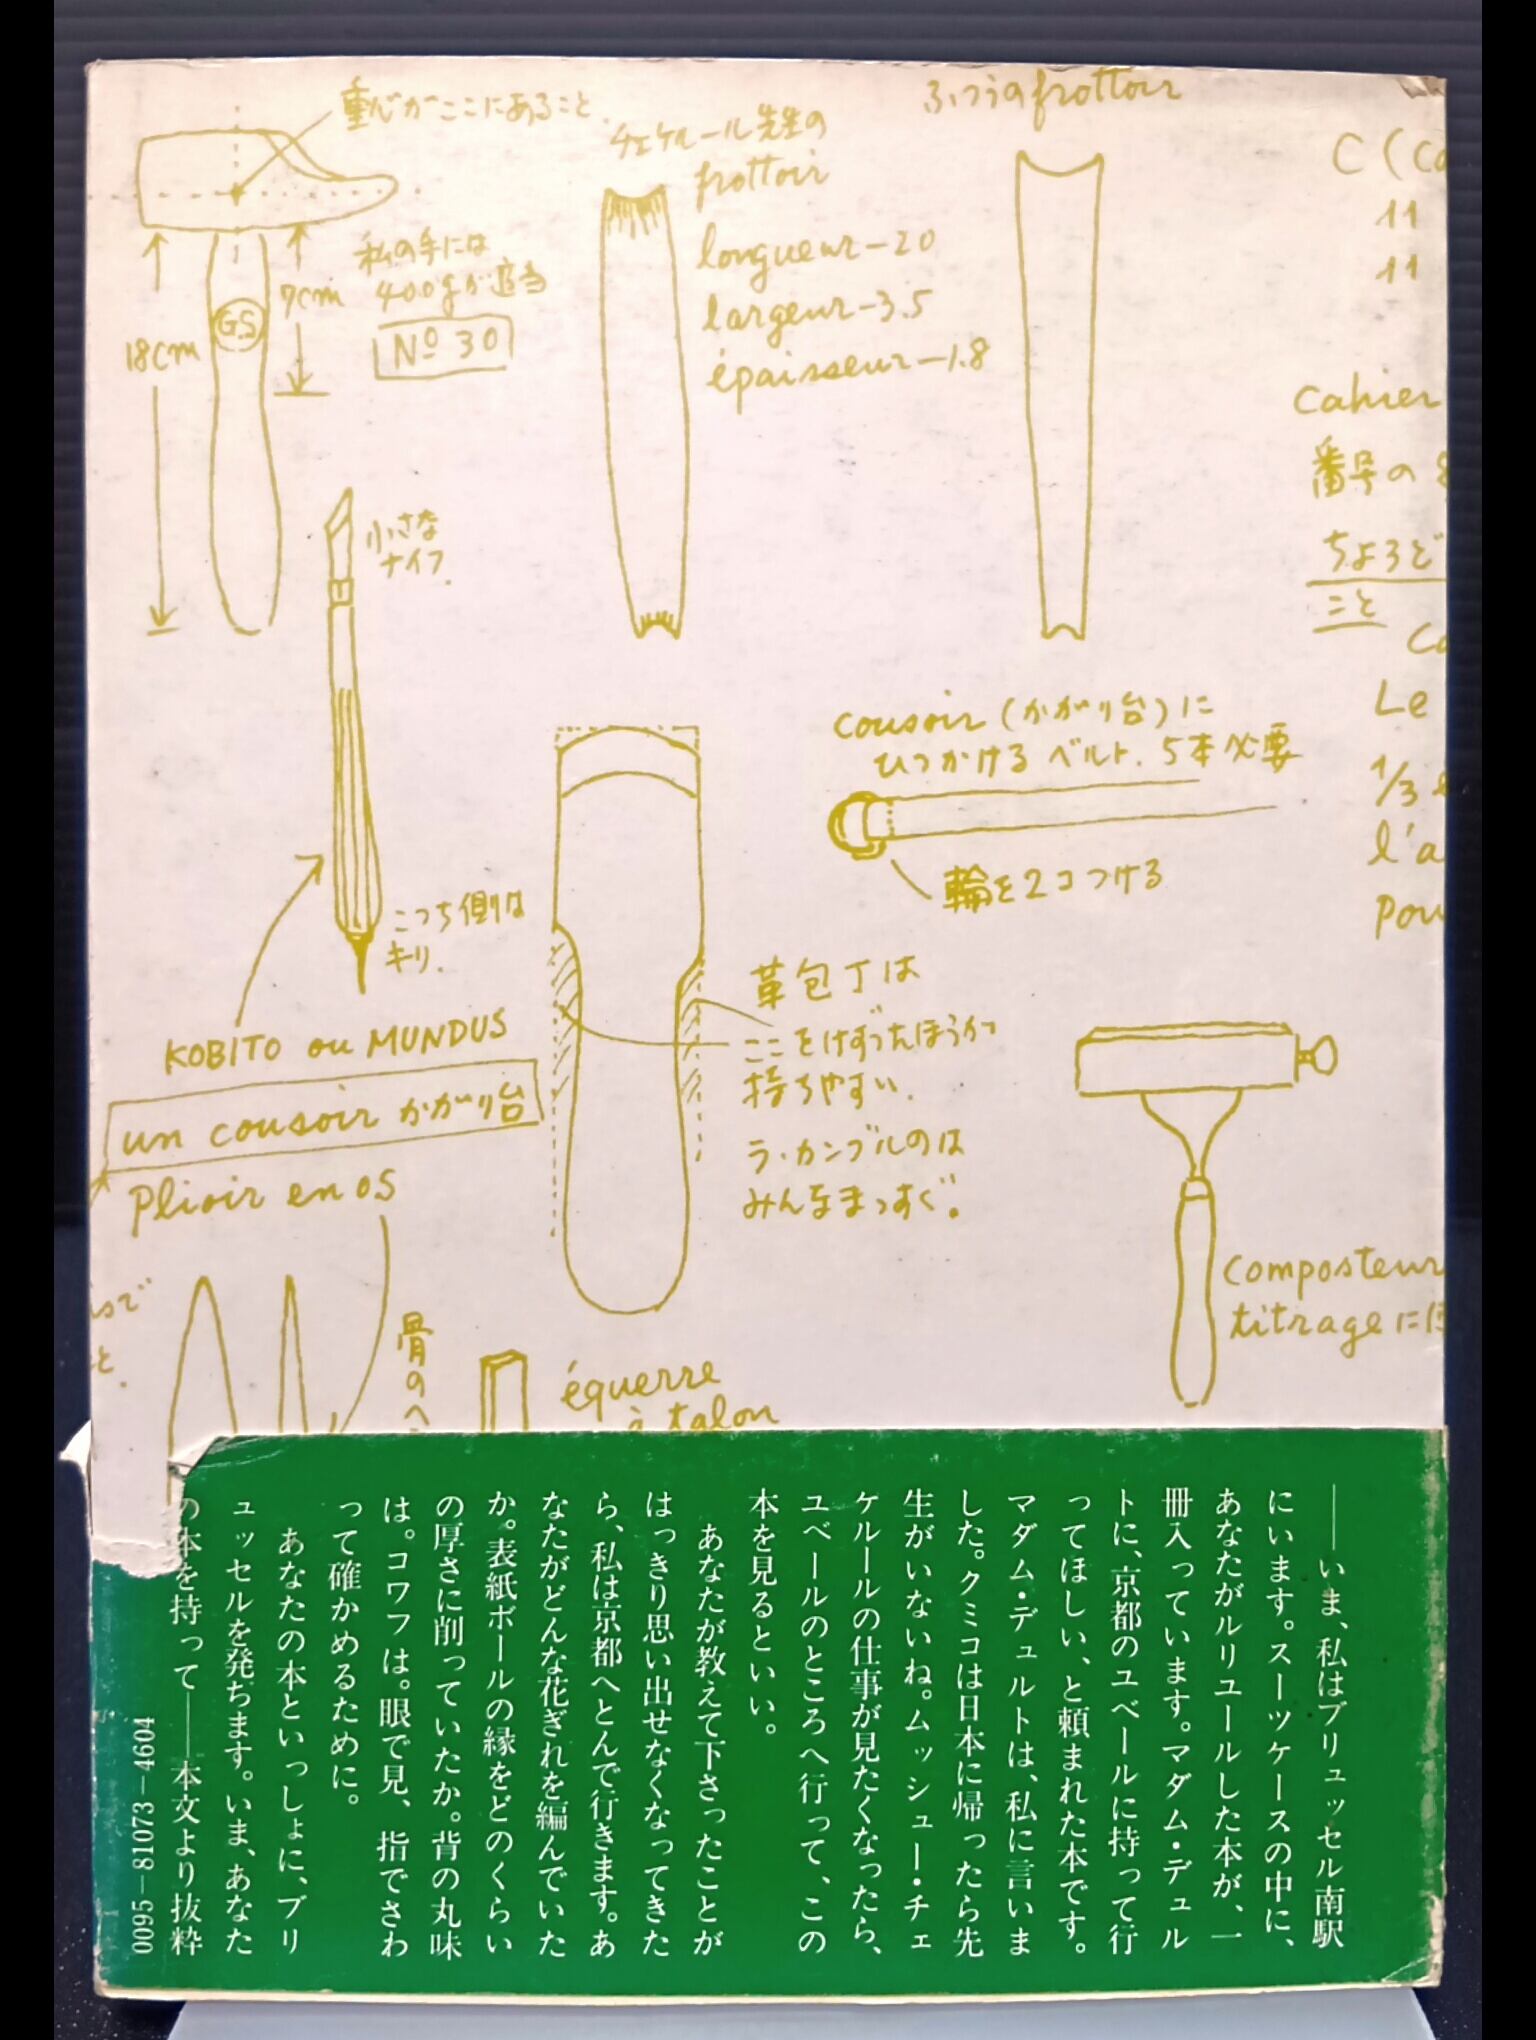 重心がここにあること.
チェケルール先生の
frottoir
longueur-20
largeur-3.5
épaisseur-1.8
ふつうのfrottoir
C (Co
11
11
18cm
7cm
G.S
私の手には
400gが適当
Nº 30
cahier
番号の
ちょうど
こと
Co
Le
1/3
l'a
pou
小さな
ナイフ.
こっち側は
キリ.
KOBITO ou MUNDUS
un cousoir かがり台
plioir en os
骨のへ
cousoir (かがり台)に
ひっかけるベルト. 5本必要
輪を2コつける
革包丁は
ここをけずったほうが
持ちやすい.
ラ・カンブルのは
みんなまっすぐ.
composteur
titrageに
équerre
à talon
で
と.
──いま、私はブリュッセル南駅
にいます。スーツケースの中に、
あなたがルリユールした本が、一
冊入っています。マダム・デュル
トに、京都のユベールに持って行
ってほしい、と頼まれた本です。
マダム・デュルトは、私に言いま
した。クミコは日本に帰ったら先
生がいないね。ムッシュー・チェ
ケルールの仕事が見たくなったら、
ユベールのところへ行って、この
本を見るといい。
あなたが教えて下さったことが
はっきり思い出せなくなってきた
ら、私は京都へとんで行きます。あ
なたがどんな花ぎれを編んでいた
か。表紙ボールの縁をどのくらい
の厚さに削っていたか。背の丸味
は。コワフは。眼で見、指でさわ
って確かめるために。
あなたの本といっしょに、ブリ
ュッセルを発ちます。いま、あなた
の本を持って──本文より抜粋
0095-81073-4604